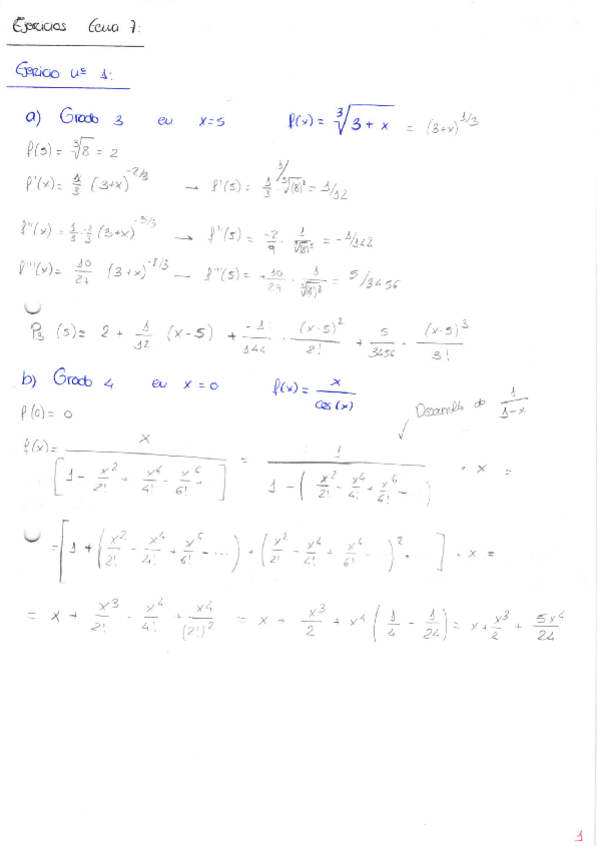 Ejercicios Tema 7:
Ejercicio nº 1:
a) Grado 3 en x=5 f(x) = ∛(3+x) = (3+x)^(1/3)
f(5) = ∛8 = 2
f'(x) = 1/3 (3+x)^(-2/3) → f'(5) = 1/3 · 1/∛(8)² = 1/12
f''(x) = 1/3 · -2/3 (3+x)^(-5/3) → f''(5) = -2/9 · 1/∛(8)⁵ = -1/144
f'''(x) = 10/27 (3+x)^(-8/3) → f'''(5) = +10/27 · 1/∛(8)⁸ = 5/3456
P₃(5) = 2 + 1/12 (x-5) + -1/144 · (x-5)²/2! + 5/3456 · (x-5)³/3!
b) Grado 4 en x=0 f(x) = x/cos(x)
Desarrollo de 1/(1-x)
f(0) = 0
f(x) = x/[1 - x²/2! + x⁴/4! - x⁶/6! ] = 1/(1 - (x²/2! - x⁴/4! + x⁶/6! - ...)) · x =
= [1 + (x²/2! - x⁴/4! + x⁶/6! - ...) + (x²/2! - x⁴/4! + x⁶/6! ...)² + ] · x =
= x + x³/2! - x⁴/4! + x⁴/(2!)² = x + x³/2 + x⁴(1/4 - 1/24) = x + x³/2 + 5x⁴/24
1